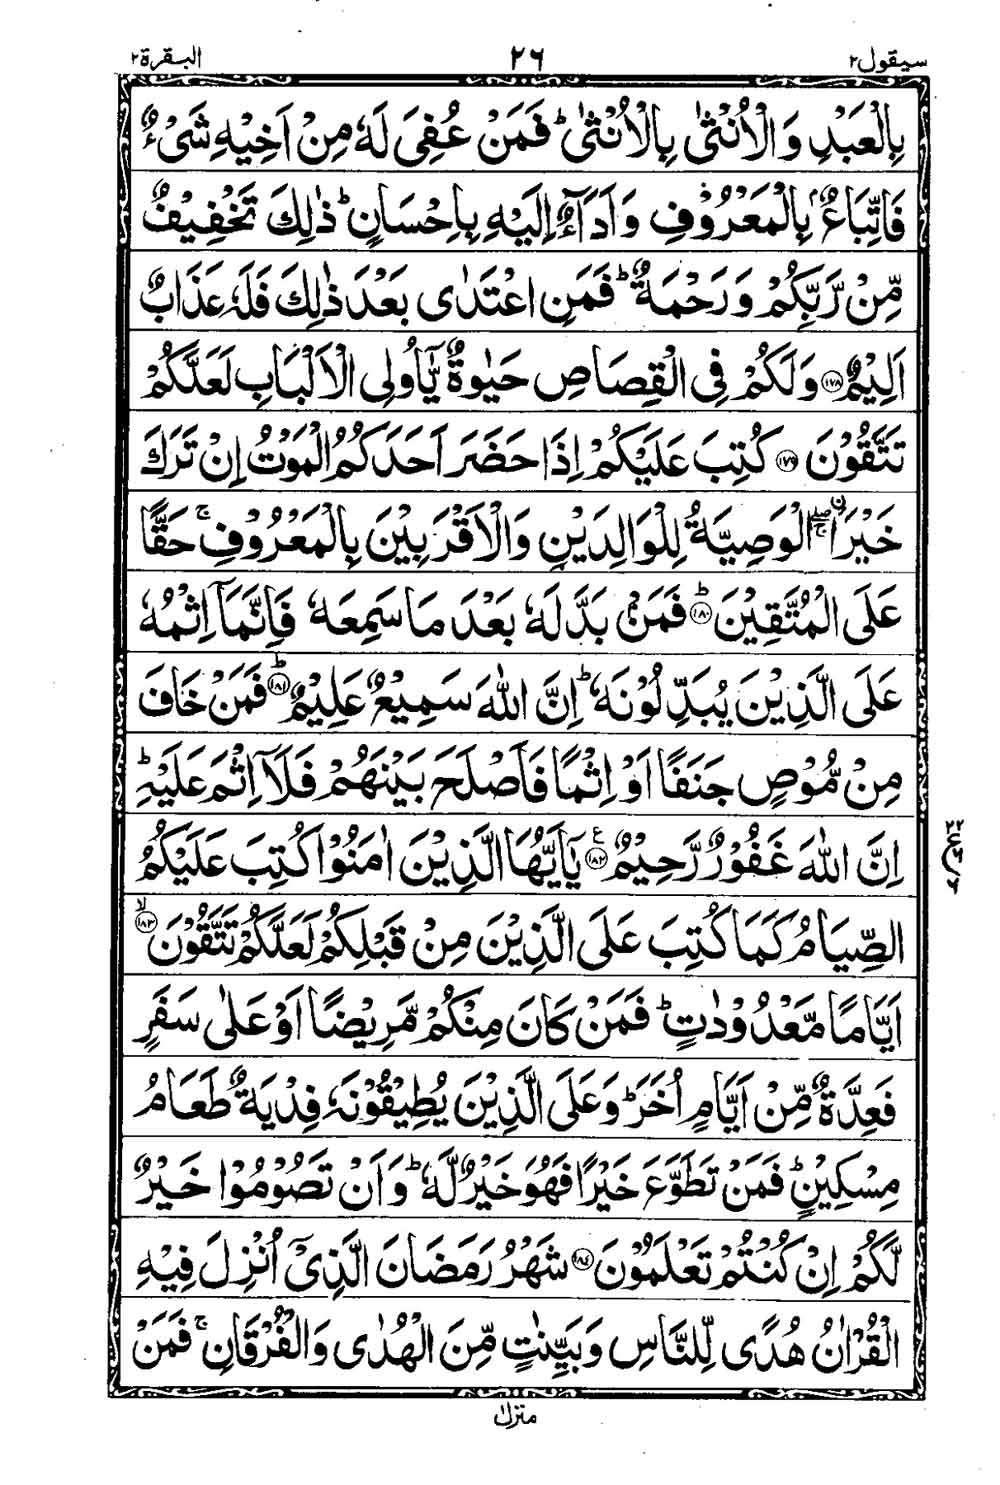 سيقول٢ ٢٦ البقرة٢
بِالْعَبْدِ وَالْاُنْثٰى بِالْاُنْثٰىؕ فَمَنْ عُفِىَ لَهٗ مِنْ اَخِيْهِ شَىْءٌ
فَاتِّبَاعٌۢ بِالْمَعْرُوْفِ وَاَدَآءٌ اِلَيْهِ بِاِحْسَانٍؕ ذٰلِكَ تَخْفِيْفٌ
مِّنْ رَّبِّكُمْ وَرَحْمَةٌؕ فَمَنِ اعْتَدٰى بَعْدَ ذٰلِكَ فَلَهٗ عَذَابٌ
اَلِيْمٌ ﴿١٧٨﴾ وَلَكُمْ فِى الْقِصَاصِ حَيٰوةٌ يّٰٓاُولِى الْاَلْبَابِ لَعَلَّكُمْ
تَتَّقُوْنَ ﴿١٧٩﴾ كُتِبَ عَلَيْكُمْ اِذَا حَضَرَ اَحَدَكُمُ الْمَوْتُ اِنْ تَرَكَ
خَيْرَاۖۚ ۨالْوَصِيَّةُ لِلْوَالِدَيْنِ وَالْاَقْرَبِيْنَ بِالْمَعْرُوْفِۚ حَقًّا
عَلَى الْمُتَّقِيْنَؕ ﴿١٨٠﴾ فَمَنْۢ بَدَّلَهٗ بَعْدَ مَا سَمِعَهٗ فَاِنَّمَاۤ اِثْمُهٗ
عَلَى الَّذِيْنَ يُبَدِّلُوْنَهٗؕ اِنَّ اللّٰهَ سَمِيْعٌ عَلِيْمٌؕ ﴿١٨١﴾ فَمَنْ خَافَ
مِنْ مُّوْصٍ جَنَفًا اَوْ اِثْمًا فَاَصْلَحَ بَيْنَهُمْ فَلَاۤ اِثْمَ عَلَيْهِؕ
اِنَّ اللّٰهَ غَفُوْرٌ رَّحِيْمٌ ﴿١٨٢﴾ ع يٰۤاَيُّهَا الَّذِيْنَ اٰمَنُوْا كُتِبَ عَلَيْكُمُ
الصِّيَامُ كَمَا كُتِبَ عَلَى الَّذِيْنَ مِنْ قَبْلِكُمْ لَعَلَّكُمْ تَتَّقُوْنَۙ ﴿١٨٣﴾
اَيَّامًا مَّعْدُوْدٰتٍؕ فَمَنْ كَانَ مِنْكُمْ مَّرِيْضًا اَوْ عَلٰى سَفَرٍ
فَعِدَّةٌ مِّنْ اَيَّامٍ اُخَرَؕ وَعَلَى الَّذِيْنَ يُطِيْقُوْنَهٗ فِدْيَةٌ طَعَامُ
مِسْكِيْنٍؕ فَمَنْ تَطَوَّعَ خَيْرًا فَهُوَ خَيْرٌ لَّهٗؕ وَاَنْ تَصُوْمُوْا خَيْرٌ
لَّكُمْ اِنْ كُنْتُمْ تَعْلَمُوْنَ ﴿١٨٤﴾ شَهْرُ رَمَضَانَ الَّذِىْۤ اُنْزِلَ فِيْهِ
الْقُرْاٰنُ هُدًى لِّلنَّاسِ وَبَيِّنٰتٍ مِّنَ الْهُدٰى وَالْفُرْقَانِۚ فَمَنْ
منزل١